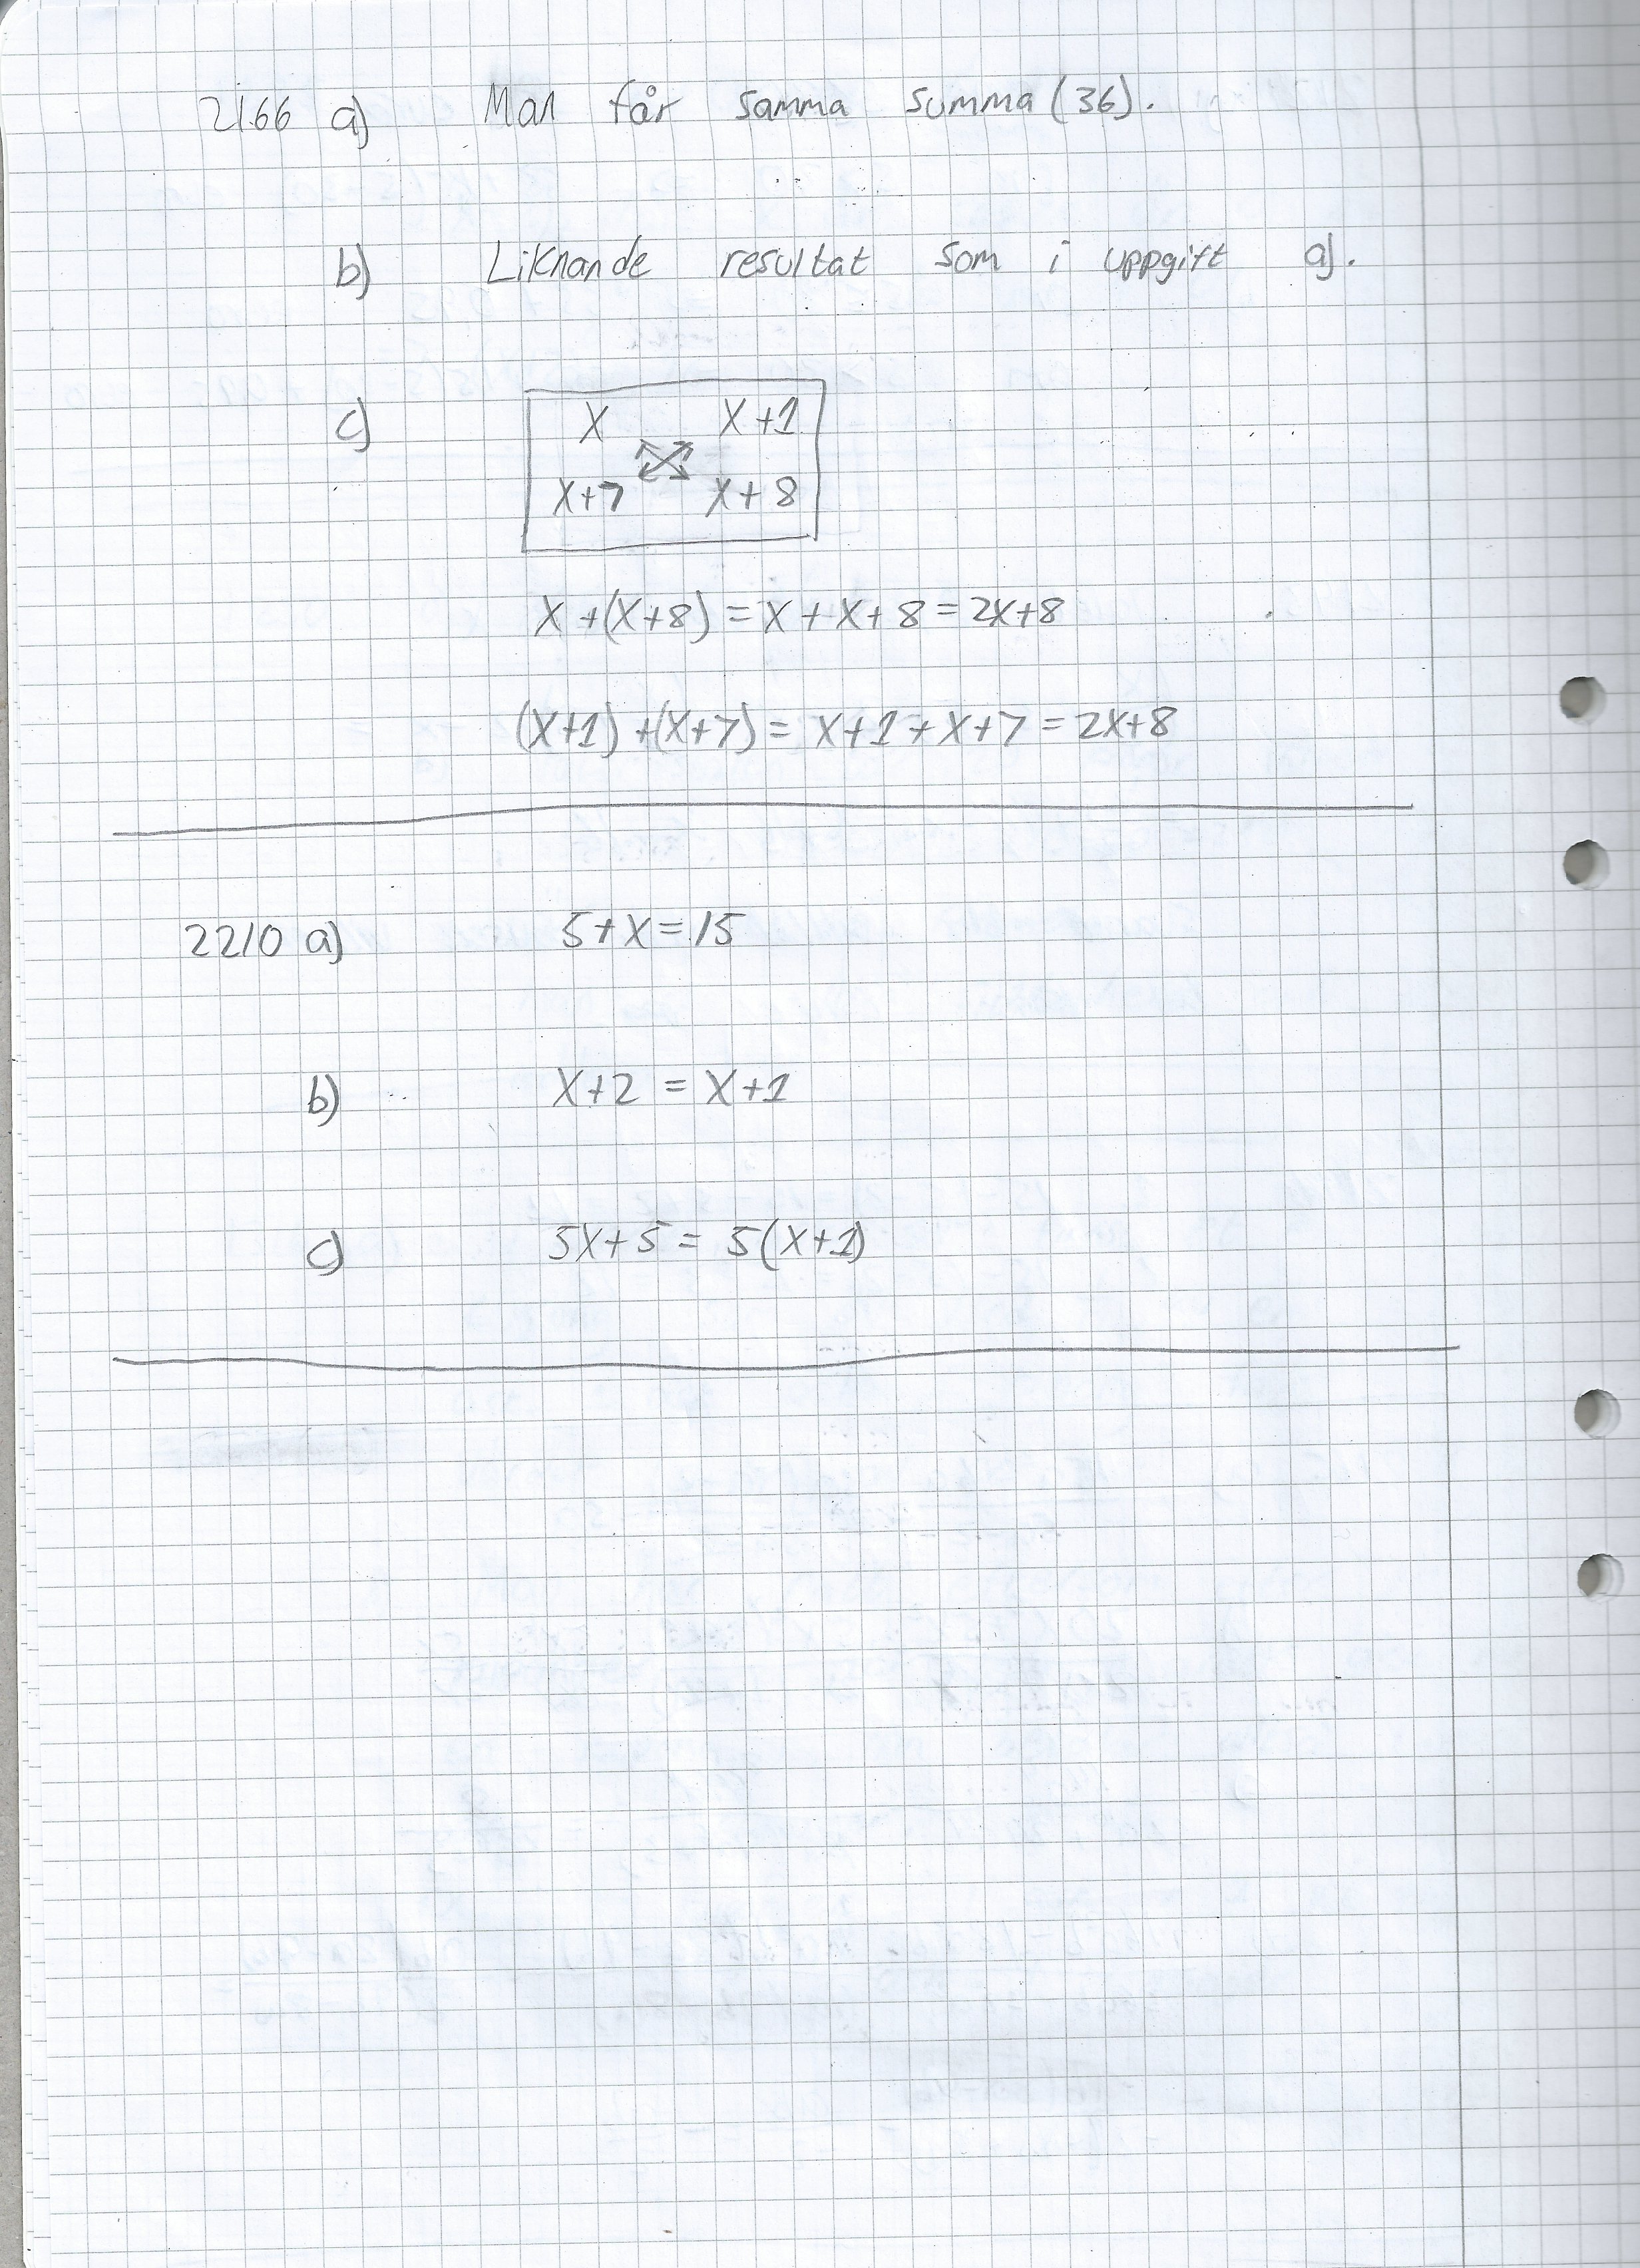 2166 a) Man får samma summa (36).
b) Liknande resultat som i uppgift a).
c)
X X+1
X+7 X+8
X+(X+8)=X+X+8=2X+8
(X+1)+(X+7)=X+1+X+7=2X+8
2210 a) 5+X=15
b) X+2=X+1
c) 5X+5=5(X+1)